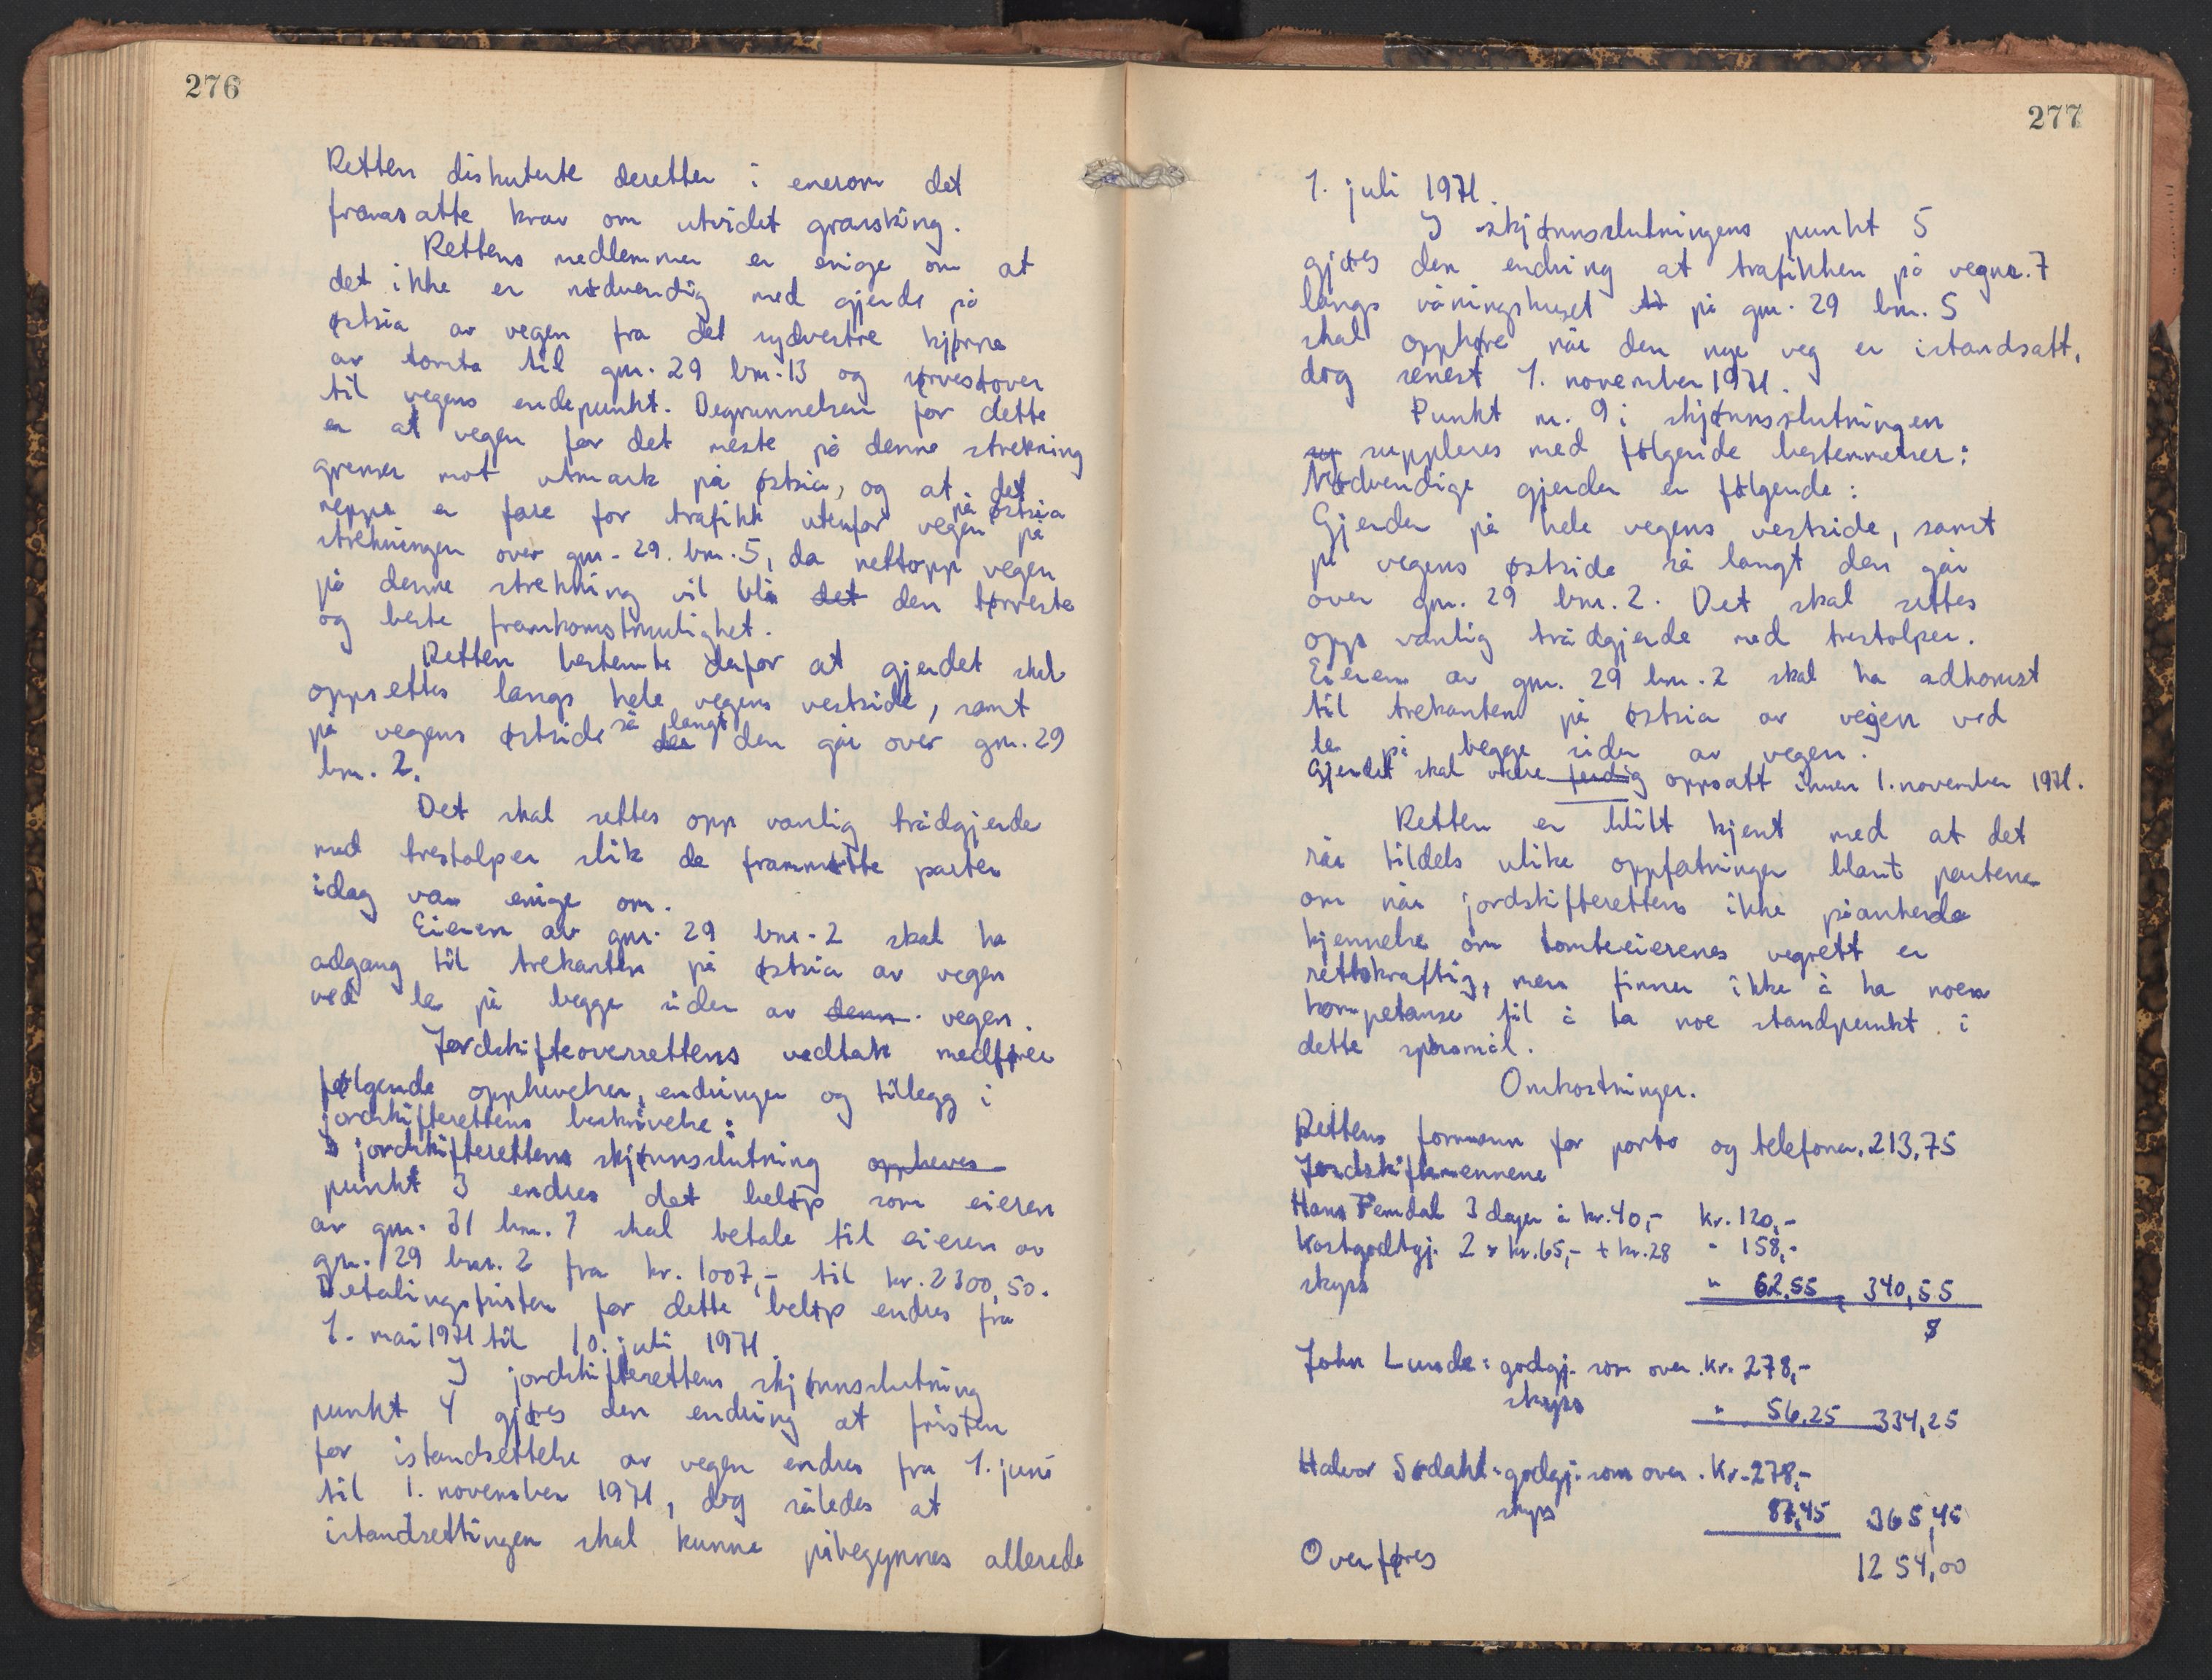 276
Retten diskuterte deretter i enerom det
framsatte krav om utvidet gransking.
Rettens medlemmer er enige om at
det ikke er nødvendig med gjerde på
østsia av vegen fra det sydvestre hjørne
av tomta til gnr. 29 bnr. 13 og sørvestover
til vegens endepunkt. Begrunnelsen for dette
er at vegen for det meste på denne strekning
grenser mot utmark på østsia, og at det
neppe er fare for trafikk utenfor vegen på østsia på
strekningen over gnr. 29. bnr. 5, da nettopp vegen
på denne strekning vil bli det den tørreste
og beste framkomstmulighet.
Retten bestemte derfor at gjerdet skal
oppsettes langs hele vegens vestside, samt
på vegens østside så langt den den går over gnr. 29
bnr. 2.
Det skal settes opp vanlig trådgjerde
med trestolper slik de frammøtte parter
idag var enige om.
Eieren av gnr. 29 bnr. 2 skal ha
adgang til trekanten på østsia av vegen
ved le på begge sider av denn vegen.
Jordskifteoverrettens vedtak medfører
følgende opphevelser, endringer og tillegg i
jordskifterettens beskrivelse:
I jordskifterettens skjønnsslutning oppheves
punkt 3 endres det beløp som eieren
av gnr. 31 bnr. 7 skal betale til eieren av
gnr. 29 bnr. 2 fra kr. 1007,- til kr. 2300,50.
Betalingsfristen for dette beløp endres fra
1. mai 1971 til 10. juli 1971.
I jordskifterettens skjønnsslutning
punkt 4 gjøres den endring at fristen
for istandsettelse av vegen endres fra 1. juni
til 1. november 1971, dog således at
istandsettingen skal kunne påbegynnes allerede
277
1. juli 1971.
I skjønnsslutningens punkt 5
gjøres den endring at trafikken på vegnr. 7
langs våningshuset på gnr. 29 bnr. 5
skal opphøre når den nye veg er istandsatt,
dog senest 1. november 1971.
Punkt nr. 9 i skjønnsslutningen
suppleres med følgende bestemmelser:
Nødvendige gjerder er følgende:
Gjerder på hele vegens vestside, samt
på vegens østside så langt den går
over gnr. 29 bnr. 2. Det skal settes
opp vanlig trådgjerde med trestolper.
Eieren av gnr. 29 bnr. 2 skal ha adkomst
til trekanten på østsia av vegen ved
le på begge sider av vegen.
Gjerdet skal være ferdig oppsatt innen 1. november 1971.
Retten er blitt kjent med at det
rår tildels ulike oppfatninger blant partene
om når jordskifterettens ikke påankede
kjennelse om tomteeierenes vegrett er
rettskraftig, men finner ikke å ha noen
kompetanse til å ta noe standpunkt i
dette spørsmål.
Omkostninger.
Rettens formann for porto og telefoner. 213,75
Jordskiftemennene
Hans Femdal 3 dager à kr. 40,- kr. 120,-
Kostgodtgj. 2 x kr. 65,- + kr. 28 " 158,-
skyss " 62,55 340,55
John Lunde: godtgj. som over. Kr. 278,-
skyss " 56,25 334,25
Halvor Sødahl: godtgj. som over. Kr. 278,-
skyss 87,45 365,45
Overføres 1254,00